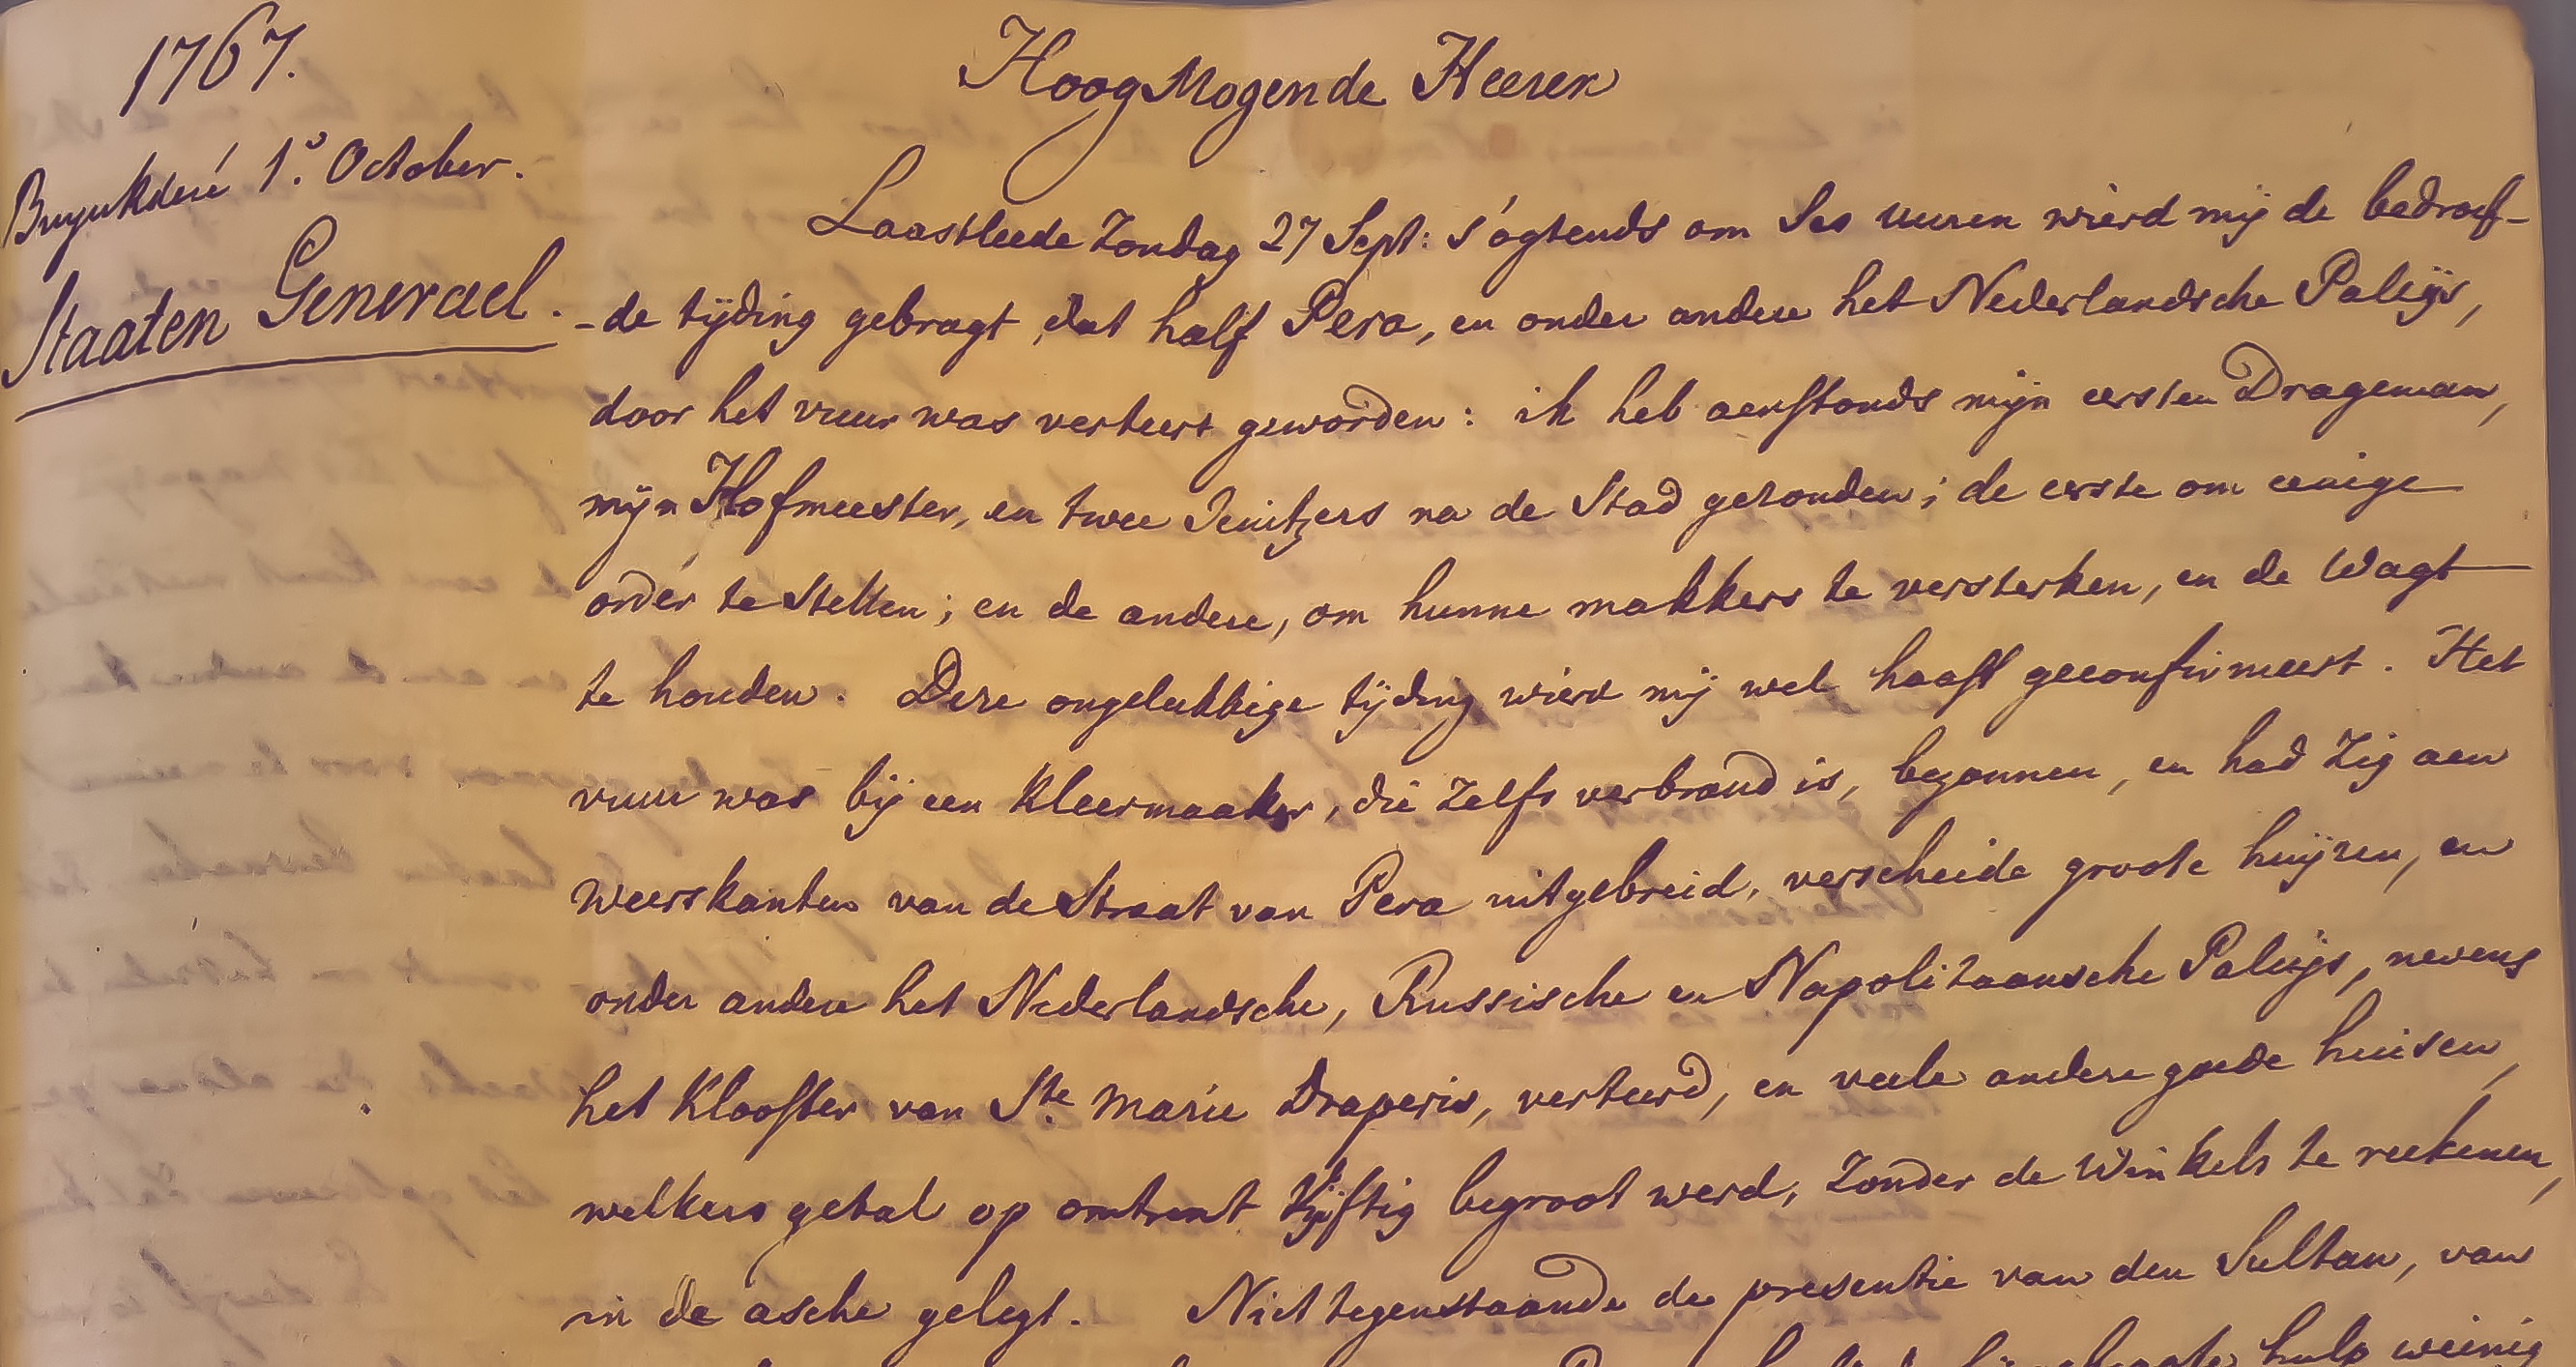 1767.
Buyukderé 1.º October.
Staaten Generael.
HoogMogende Heeren
Laastleede Zondag 27 Sept: s'ogtends om Ses uuren wierd mij de bedroef-
-de tijding gebragt, dat half Pera, en onder andere het Nederlandsche Paleijs,
door het vuur was verteert geworden: ik heb aenstonds mijn eersten Drageman,
mijn Hofmeester, en twee Jenitzers na de Stad gezonden; de eerste om eenige
order te stellen; en de andere, om hunne makkers te versterken, en de Wagt
te houden. Deze ongelukkige tijding wierd mij wel haast geconfirmeert. Het
vuur was bij een Kleermaaker, die Zelfs verbrand is, begonnen, en had Zig aen
weerskanten van de Straat van Pera uitgebreid, verscheide groote huijzen, en
onder andere het Nederlandsche, Russische en Napolitaansche Paleijs, nevens
het Klooster van Ste. Marie Draperis, verteerd, en veele andere goede huisen,
welkers getal op omtrent Vijftig begroot werd, Zonder de Winkels te reekenen,
in de asche gelegt. Niettegenstaande de presentie van den Sultan, van
hulp weinig